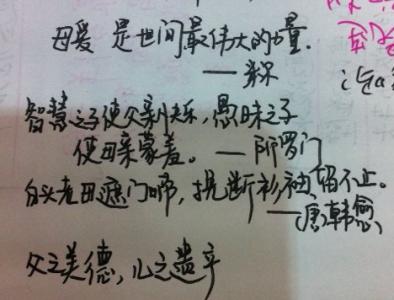 母爱 是世间最伟大的力量.
——米尔
智慧之子使父亲快乐,愚昧之子
使母亲蒙羞。—所罗门
白头老母遮门啼,挽断衫袖留不止。
——唐,韩愈
父之美德,儿之遗产